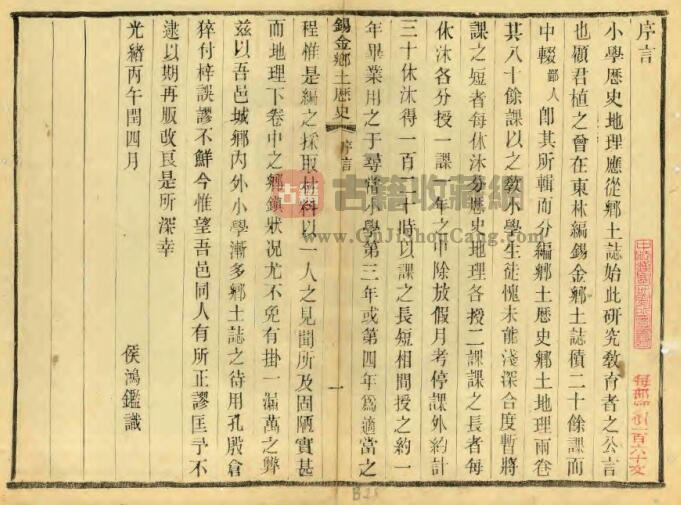 序言
小學歷史地理應從鄉土誌始此研究敎育者之公言
也顧君植之曾在東林編錫金鄉土誌積二十餘課而
中輟鄙人卽其所輯而分編鄉土歷史鄉土地理兩卷
其八十餘課以之敎小學生徒愧未能淺深合度暫將
課之短者每休沐分歷史地理各授二課課之長者每
休沐各分授一課一年之中除放假月考停課外約計
三十休沐得一百二十時以課之長短相間授之約一
年畢業用之于尋常小學第三年或第四年爲適當之
錫金鄉土歷史 序言 一
程惟是編之採取材料以一人之見聞所及固陋實甚
而地理下卷中之鄉鎭狀况尤不免有掛一漏萬之弊
兹以吾邑城鄉内外小學漸多鄉土誌之待用孔殷倉
猝付梓誤謬不鮮今惟望吾邑同人有所正謬匡予不
逮以期再版改良是所深幸
光緖丙午閏四月
侯鴻鑑識
每部 一百六十文
古籍收藏網
www.GuJiShouCang.com
B25